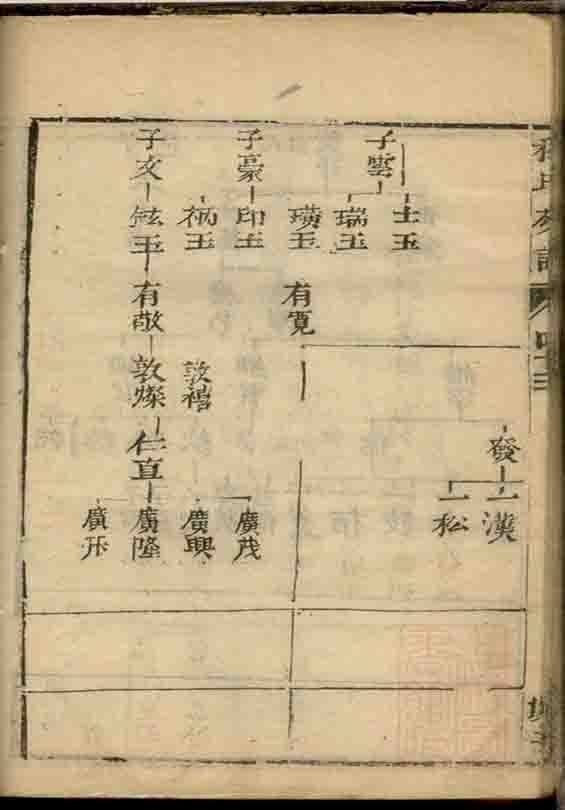 發
一漢
一松
子雲
士玉
瑞玉
璜玉
有寬
子豪
印玉
柄玉
敦禧
廣茂
廣興
子文
鉉玉
有敬
敦燦
仁直
廣隆
廣升